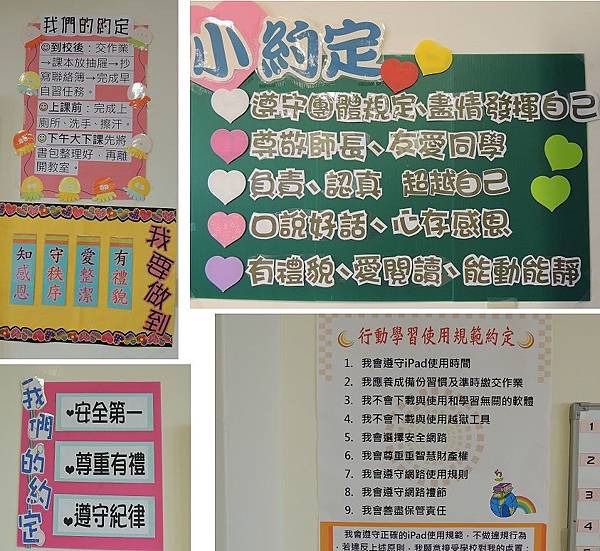 我們的約定
☺到校後：交作業
→課本放抽屜→抄
寫聯絡簿→完成早
自習任務。
☺上課前：完成上
廁所、洗手、擦汗。
☺下午大下課先將
書包整理好、再離
開教室。
我要做到
有禮貌
愛整潔
守秩序
知感恩
小約定
遵守團體規定、盡情發揮自己
尊敬師長、友愛同學
負責、認真 超越自己
口說好話、心存感恩
有禮貌、愛閱讀、能動能靜
我們的約定
♥安全第一
♥尊重有禮
♥遵守紀律
行動學習使用規範約定
1. 我會遵守iPad使用時間
2. 我應養成備份習慣及準時繳交作業
3. 我不會下載與使用和學習無關的軟體
4. 我不會下載與使用越獄工具
5. 我會選擇安全網路
6. 我會尊重智慧財產權
7. 我會遵守網路使用規則
8. 我會遵守網路禮節
9. 我會善盡保管責任
我會遵守正確的iPad使用規範，不做違規行為
，若違反上述原則，我願意接受學校對我的處置：
1
2
3
4